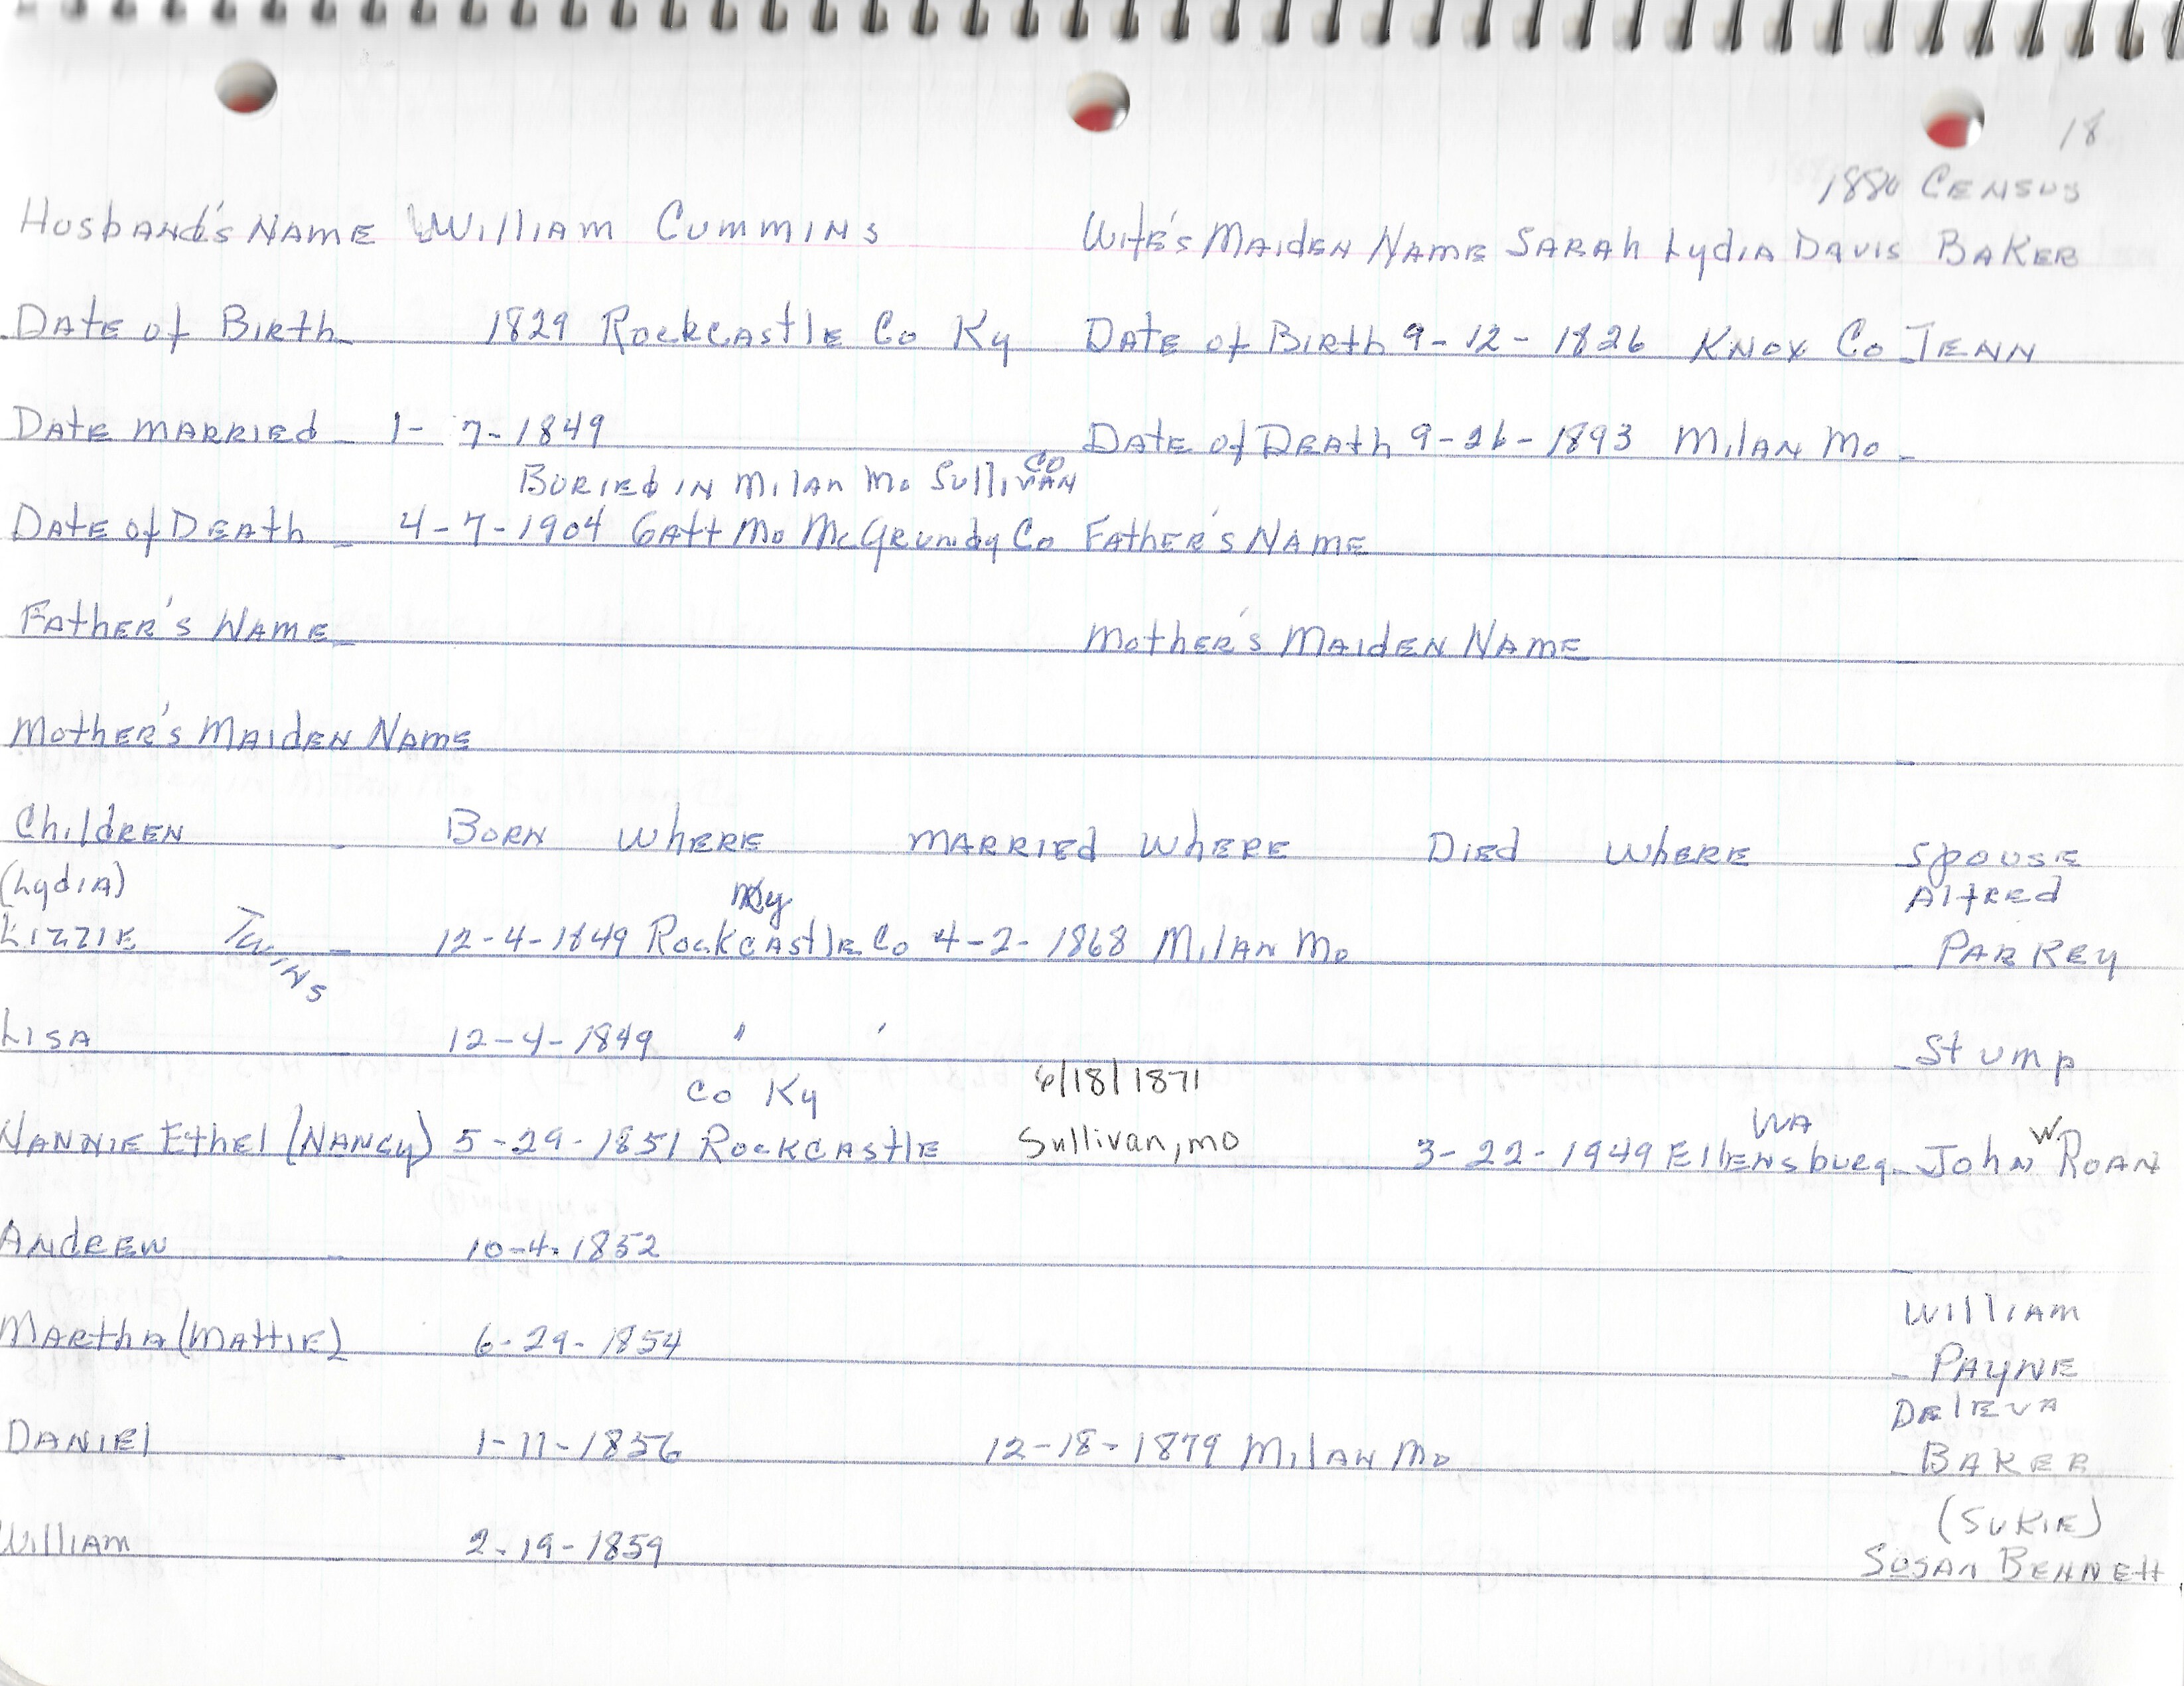 18
1880 CENSUS
Husband's NAME William Cummins Wife's Maiden Name Sarah Lydia Davis Baker
Date of Birth 1829 Rockcastle Co Ky Date of Birth 9-12-1826 Knox Co Tenn
Date married 1-7-1849 Date of Death 9-26-1893 Milan Mo
Buried in Milan Mo Sullivan Co
Date of Death 4-7-1904 Galt Mo McGrundy Co Father's Name
Father's Name Mother's Maiden Name
Mother's Maiden Name
Children Born Where Married Where Died Where Spouse
(Lydia) Ky Alfred
Lizzie Twins 12-4-1849 Rockcastle Co 4-2-1868 Milan Mo Parkey
Lisa 12-4-1849 " " Stump
Co Ky 6/18/1871
Nannie Ethel (Nancy) 5-29-1851 Rockcastle Sullivan, mo 3-22-1949 Ellensburg WA John W Roan
Andrew 10-4-1852
William
Martha (Mattie) 6-29-1854 Payne
Deleva
Daniel 1-11-1856 12-18-1879 Milan Mo Baker
(Sukie)
William 2-19-1859 Susan Bennett